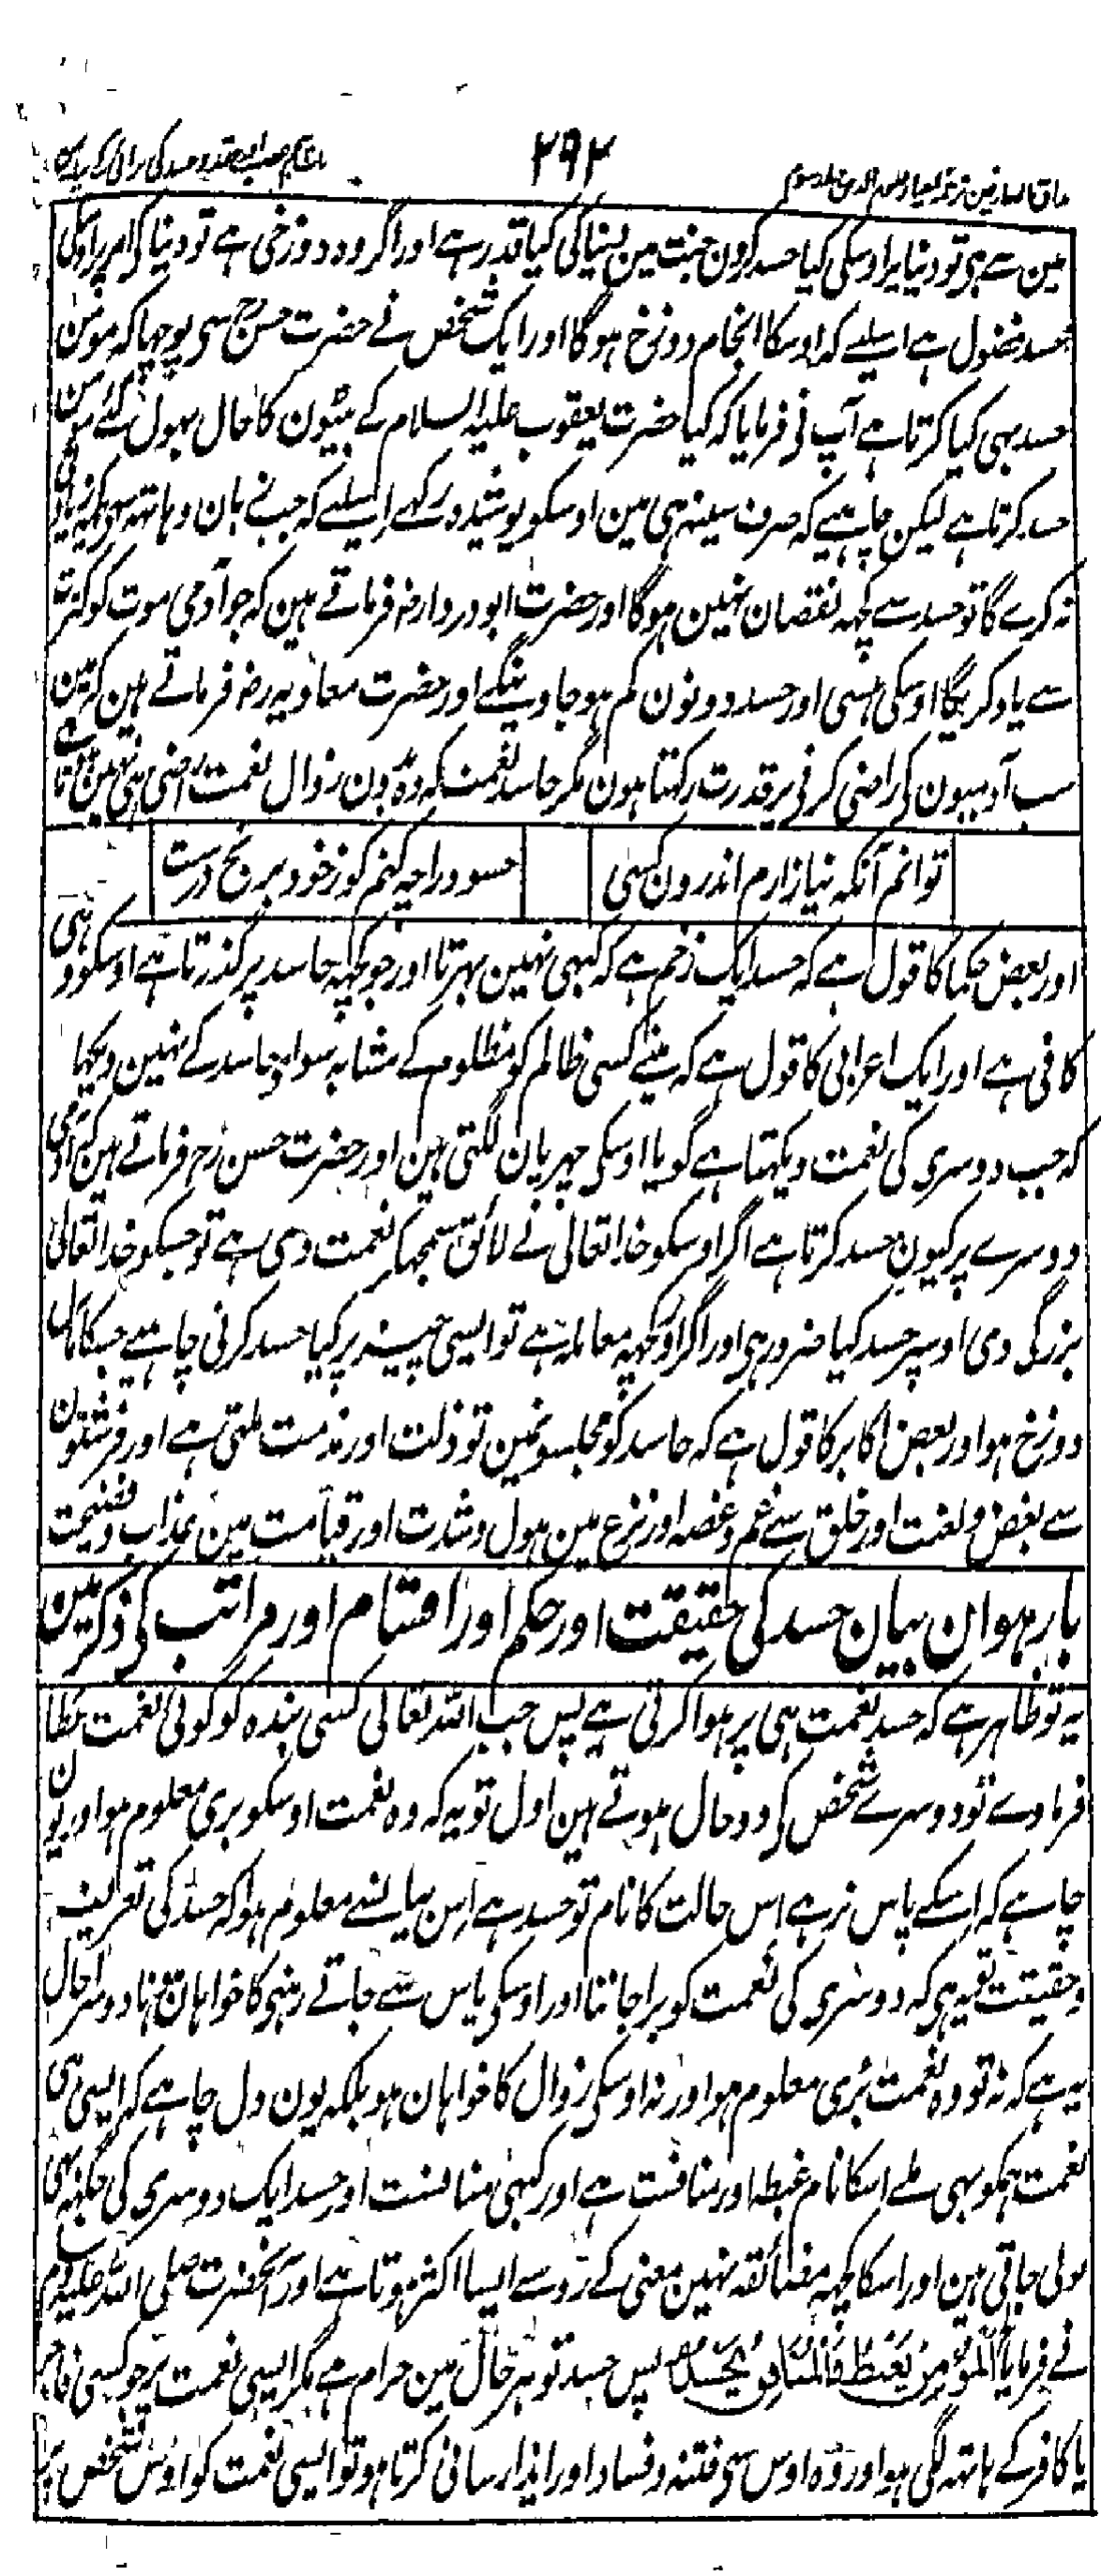 ۲۹۲
مین سے ہی تو دنیا پر اوسکی کیا حسد کرون جنت مین دنیا کی کیا قدر ہے اور اگر وہ دوزخی ہے تو دنیا کے امر پر اوسکی
حسد فضول ہے اسلیے کہ اوسکا انجام دوزخ ہوگا اور ایک شخص نے حضرت حسن رح سی پوچہا کہ مومن
حسد بہی کیا کرتا ہے آپ نی فرمایا کہ کیا حضرت یعقوب علیہ السلام کے بیٹیون کا حال بہول گئے مومن
حسد کرتا ہے لیکن چاہیے کہ صرف سینہ ہی مین اوسکو پوشیدہ رکہے اسلیے کہ جب زبان و ہاتہ سے کچہہ زیادتی
نہ کرے گا تو حسد سے کچہہ نقصان نہین ہوگا اور حضرت ابو دردا رض فرماتے ہین کہ جو آدمی موت کو کثرت
سے یاد کریگا اوسکی ہنسی اور حسد دونون کم ہو جاوینگے اور حضرت معاویہ رض فرماتے ہین کہ مین
سب آدمیون کی راضی کرنی پر قدرت رکہتا ہون مگر حاسد نعمت کہ وہ بدون زوال نعمت راضی ہی نہین ہوتا
توانم آنکہ نیازارم اندرون کسی
حسود را چہ کنم کو ز خود برنج درست
اور بعض حکما کا قول ہے کہ حسد ایک زخم ہے کہ کبہی نہین بہرتا اور جو کچہہ حاسد پر گذرتا ہے اوسکو وہی
کافی ہے اور ایک اعرابی کا قول ہے کہ مینے کسی ظالم کو مظلوم کے مشابہ سواء حاسد کے نہین دیکہا
کہ جب دوسری کی نعمت دیکہتا ہے گویا اوسکی چہریان لگتی ہین اور حضرت حسن رح فرماتے ہین کہ آدمی
دوسرے پر کیون حسد کرتا ہے اگر اوسکو خدا تعالی نے لائق سمجہا کر نعمت دی ہے تو جسکو خدا تعالی
بزرگی دی اوسپر حسد کیا ضرور ہی اور اگر اور کچہہ معاملہ ہے تو ایسی چیز پر کیا حسد کرنی چاہیے جسکا مآل
دوزخ ہو اور بعض اکابر کا قول ہے کہ حاسد کو مجلسونمین تو ذلت اور مذمت ملتی ہے اور فرشتون
سے بغض و لعنت اور خلق سے غم و غصہ اور نزع مین ہول و شدت اور قیامت مین عذاب و فضیحت
بارہوان بیان حسد کی حقیقت اور حکم اور اقسام اور مراتب کی ذکر مین
یہ تو ظاہر ہے کہ حسد نعمت ہی پر ہوا کرتی ہے پس جب اللہ تعالی کسی بندہ کو کوئی نعمت عطا
فرماوے تو دوسرے شخص کی دو حال ہوتے ہین اول تو یہ کہ وہ نعمت اوسکو بری معلوم ہو اور یون
چاہے کہ اسکے پاس نرہے اس حالت کا نام تو حسد ہے اس بیانسے معلوم ہوا کہ حسد کی تعریف
و حقیقت تو یہ ہی کہ دوسری کی نعمت کو برا جاننا اور اوسکی پاس سے جاتے رہنی کا خواہان ہونا دوسرا حال
یہ ہے کہ نہ تو وہ نعمت بری معلوم ہو اور نہ اوسکی زوال کا خواہان ہو بلکہ یون دل چاہے کہ ایسی ہی
نعمت ہمکو بہی ملے اسکا نام غبطہ اور منافست ہے اور کبہی منافست اور حسد ایک دوسری کی جگہہ بہی
بولی جاتی ہین اور اسکا کچہہ مضائقہ نہین معنی کے رو سے ایسا اکثر ہوتا ہے اور آنحضرت صلی اللہ علیہ وسلم
نے فرمایا المؤمن یغبط والمنافق یحسد پس حسد تو ہر حال مین حرام ہے مگر ایسی نعمت پر جو کسی فاجر
یا کافر کے ہاتہہ لگی ہو اور وہ اوس سی فتنہ و فساد اور ایذا رسانی کرتا ہو تو ایسی نعمت کو اوس شخص